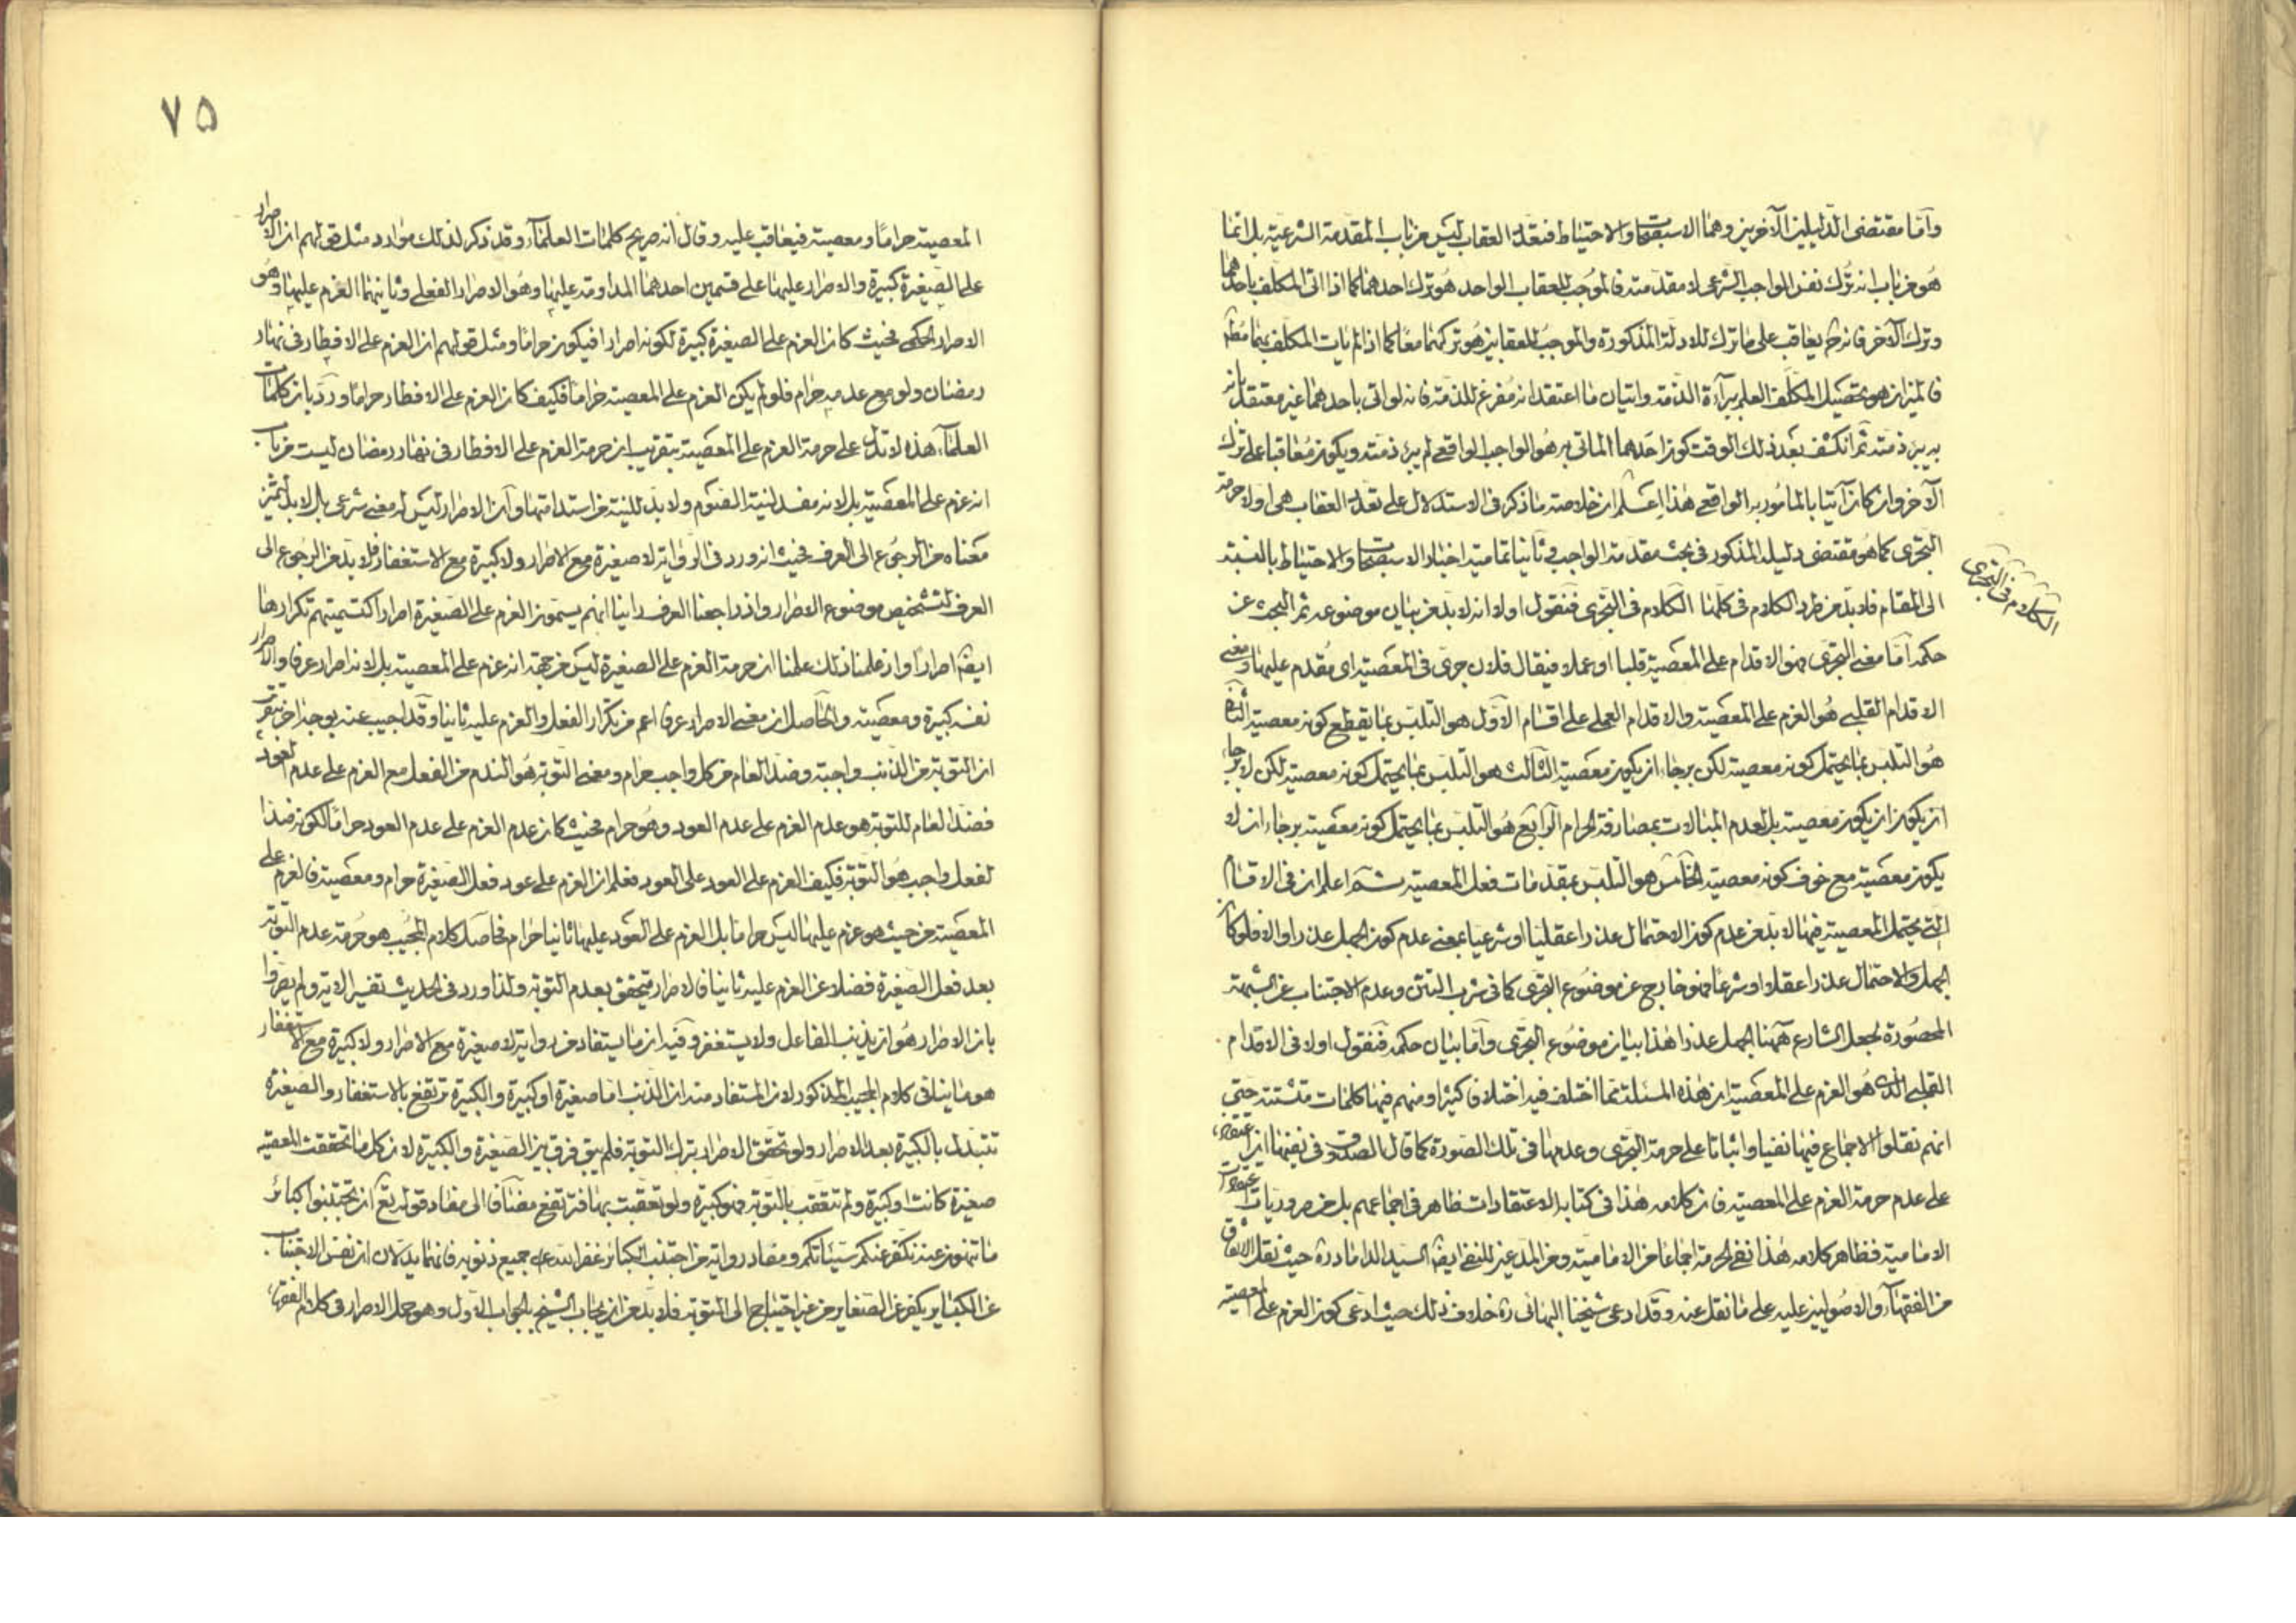 وأما مقتضى الدليلين الآخرين وهما الاستصحاب والاحتياط فتعدد العقاب ليس من باب المقدمة الشرعية بل انما
هو من باب انه ترك نفس الواجب الشرعى لا مقدمته فالموجب للعقاب الواحد هو ترك احدهما كما اذا اتى المكلف باحدهما
وترك الآخر فانه ح يعاقب على ما ترك للادلة المذكورة والموجب للعقابين هو تركهما معا كما اذا لم يات المكلف بهما
فالميزان هو تحصيل المكلف العلم ببرآءة الذمة واتيان ما اعتقد انه مفرغ للذمة فانه لو اتى باحدهما غير معتقد بانه
به يبرء ذمته ثم انكشف بعد ذلك الوقت كون احدهما الماتى به هو الواجب الواقعى لم يبرء ذمته ويكون معاقبا على ترك
الآخر وان كان آتيا بالمأمور به الواقعى هذا اعلم ان خلاصة ما ذكر فى الاستدلال على تعدد العقاب هى اولا حرمة
التجرى كما هو مقتضى دليله المذكور فى بحث مقدمة الواجب وثانيا تمامية اخبار الاستصحاب والاحتياط بالنسبة
الى المقام فلا بد من طرد الكلام فى كلمنا الكلام فى التجرى فنقول اولا انه لا بد من بيان موضوعه ثم البحث عن
الكلام فى التجرى
حكمه اما معنى التجرى فهو الاقدام على المعصية قلبا او عملا فيقال فلان جرى فى المعصية اى مقدم عليها ومعنى
الاقدام القلبى هو العزم على المعصية والاقدام العملى على اقسام الاول هو التلبس بما يقطع كونه معصية الثانى
هو التلبس بما يحتمل كونه معصية لكن برجاء ان يكون معصية الثالث هو التلبس بما يحتمل كونه معصية لكن لا برجاء
ان يكون ان يكون معصية بل لعدم المبالات بمصادفة الحرام الرابع هو التلبس بما يحتمل كونه معصية برجاء ان لا
يكون معصية مع خوف كونه معصية الخامس هو التلبس بمقدمات فعل المعصية ثم اعلم ان فى الاقسام
التى يحتمل المعصية فيها لا بد من عدم كون الاحتمال عذرا عقليا او شرعيا بمعنى عدم كون الجهل عذرا والا فلو كان
الجهل والاحتمال عذرا عقلا او شرعا فهو خارج عن موضوع التجرى كما فى شرب التتن وعدم الاجتناب عن الشبهة
المحصورة لجعل الشارع ههنا الجهل عذرا هذا بيان موضوع التجرى واما بيان حكمه فنقول اولا فى الاقدام
القلبى الذى هو العزم على المعصية ان هذه المسئلة مما اختلف فيه اختلافا كثيرا ومنهم فيها كلمات متشتتة حتى
انهم نقلوا الاجماع فيها نفيا واثباتا على حرمة التجرى وعدمها فى تلك الصورة كما قال الصدوق فى نفيها ان عقيدتنا
على عدم حرمة العزم على المعصية فان كلامه هذا فى كتابه الاعتقادات ظاهر فى اجماعهم بل من ضروريات
الامامية فظاهر كلامه هذا نفى الحرمة اجماعا من الامامية ومن المدعين للنفى ايضا السيد الداماد ره حيث نقل الاتفاق
من الفقهآء والاصوليين عليه على ما نقل عنه وقد ادعى شيخنا البهائى ره خلاف ذلك حيث ادعى كون العزم على المعصية
٧٥
المعصية حراما ومعصية فيعاقب عليه وقال انه صريح كلمات العلمآء وقد ذكر لذلك موارد مثل قولهم ان الاصرار
على الصغيرة كبيرة والاصرار عليها على قسمين احدهما المداومة عليها وهو الاصرار الفعلى وثانيهما العزم عليها وهو
الاصرار الحكمى فحيث كان العزم على الصغيرة كبيرة لكونه اصرارا فيكون حراما ومثل قولهم ان العزم على الافطار فى نهار
رمضان ولو مع عدمه حرام فلو لم يكن العزم على المعصية حراما فكيف كان العزم على الافطار حراما ورد بان كلمات
العلمآء هذه لا تدل على حرمة العزم على المعصية بتقريب ان حرمة العزم على الافطار فى نهار رمضان ليست من باب
انه عزم على المعصية بل لانه مفسد لنية الصوم ولا بد للنية من استدامتها وان الاصرار ليس له معنى شرعى بل لا بد
معناه من الرجوع الى العرف فحيث انه ورد فى الرواية لا صغيرة مع الاصرار ولا كبيرة مع الاستغفار فلا بد من الرجوع الى
العرف لتشخيص موضوع الاصرار واذ راجعنا العرف راينا انهم يسمون العزم على الصغيرة اصرارا كتسميتهم تكرارها
ايضا اصرارا واذ علمنا ذلك علمنا ان حرمة العزم على الصغيرة ليس من جهة انه عزم على المعصية بل لانه اصرار عرفا والاصرار
نفسه كبيرة ومعصية والحاصل ان معنى الاصرار عرفا اعم من تكرار الفعل والعزم عليه ثانيا وقد اجيب عنه بوجه آخر
ان التوبة من الذنب واجبة وضد العام من كل واجب حرام ومعنى التوبة هو الندم من الفعل مع العزم على عدم العود
فضد العام للتوبة هو عدم العزم على عدم العود وهو حرام فحيث كان عدم العزم على عدم العود حراما لكونه ضدا
لفعل واجب هو التوبة فكيف العزم على العود على العود فعلم ان العزم على عود فعل الصغيرة حرام ومعصية فالعزم على
المعصية من حيث هو عزم عليها ليس حراما بل العزم على العود عليها ثانيا حرام فحاصل كلام المجيب هو حرمة عدم التوبة
بعد فعل الصغيرة فضلا عن العزم عليه ثانيا فالاصرار يتحقق بعدم التوبة ولذا ورد فى الحديث تفسير الاية ولم يصروا
بان الاصرار هو ان يذنب الفاعل ولا يستغفر وفيه ان ما يستفاد من رواية لا صغيرة مع الاصرار ولا كبيرة مع الاستغفار
هو ما ينافى كلام المجيب المذكور لان المستفاد منه ان الذنب اما صغيرة او كبيرة والكبيرة ترتفع بالاستغفار والصغيرة
تتبدل بالكبيرة بعد الاصرار ولو تحقق الاصرار بترك التوبة فلم يبق فرق بين الصغيرة والكبيرة لان كل ما تحققت المعصية
صغيرة كانت او كبيرة ولم تتعقب بالتوبة فهو كبيرة ولو تعقبت بها فترتفع مضافا الى مفاد قوله تع ان تجتنبوا كبائر
ما تنهون عنه نكفر عنكم سيئاتكم ومفاد رواية من اجتنب الكبائر غفر الله جميع ذنوبه فانهما يدلان ان نفس الاجتناب
عن الكبائر يكفر عن الصغاير من غير احتياج الى التوبة فلا بد من ان يجاب الشيخ بالجواب الاول وهو حمل الاصرار فى كلام الفقهاء